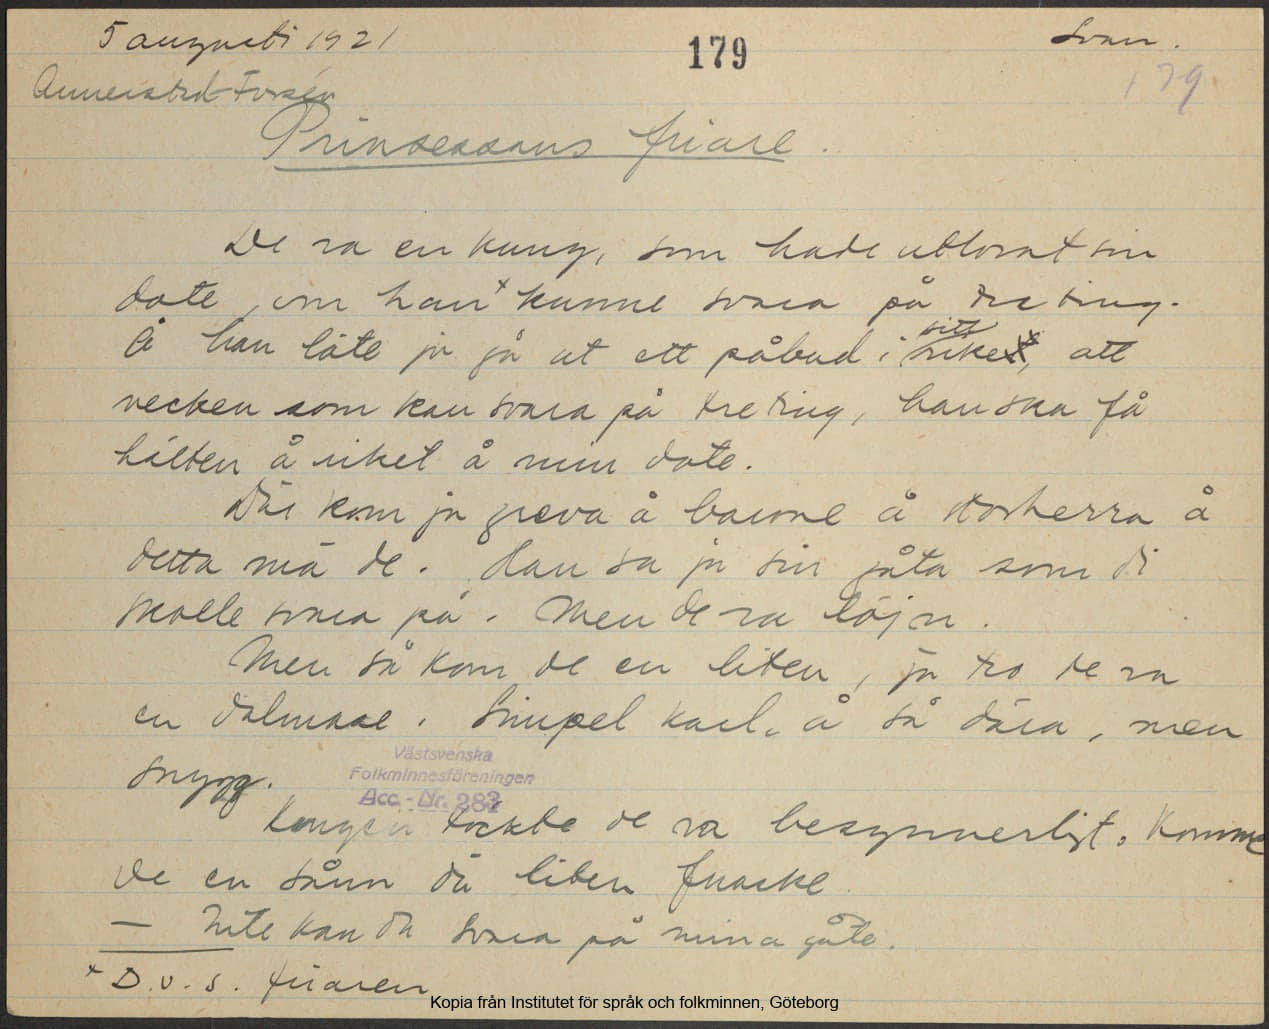 5 augusti 1921
179
Svan.
179
Annerstedt-Forsén
Prinsessans friare.
De va en kung, som hade utlovat sin
dote, om han x kunne svara på tre ting.
Å han läte ju gå ut ett påbud i sitt rike, att
vecken som kan svara på tre ting, han ska få
hälten å riket å min dote.
Där kom ju greva å barone å storherra å
detta mä de. Han sa ju sin gåta som di
skolle svara på. Men de va löjn.
Men så kom de en liten, ja tro de va
en dalmase. Simpel karl. å så dära, men
snygg.
Västsvenska
Folkminnesföreningen
Acc.-Nr. 283
Kungen tockte de va besynnerligt. Komme
de en sånn dä liten
— Inte kan du svara på mina gåte.
x D.v.s. friaren
Kopia från Institutet för språk och folkminnen, Göteborg